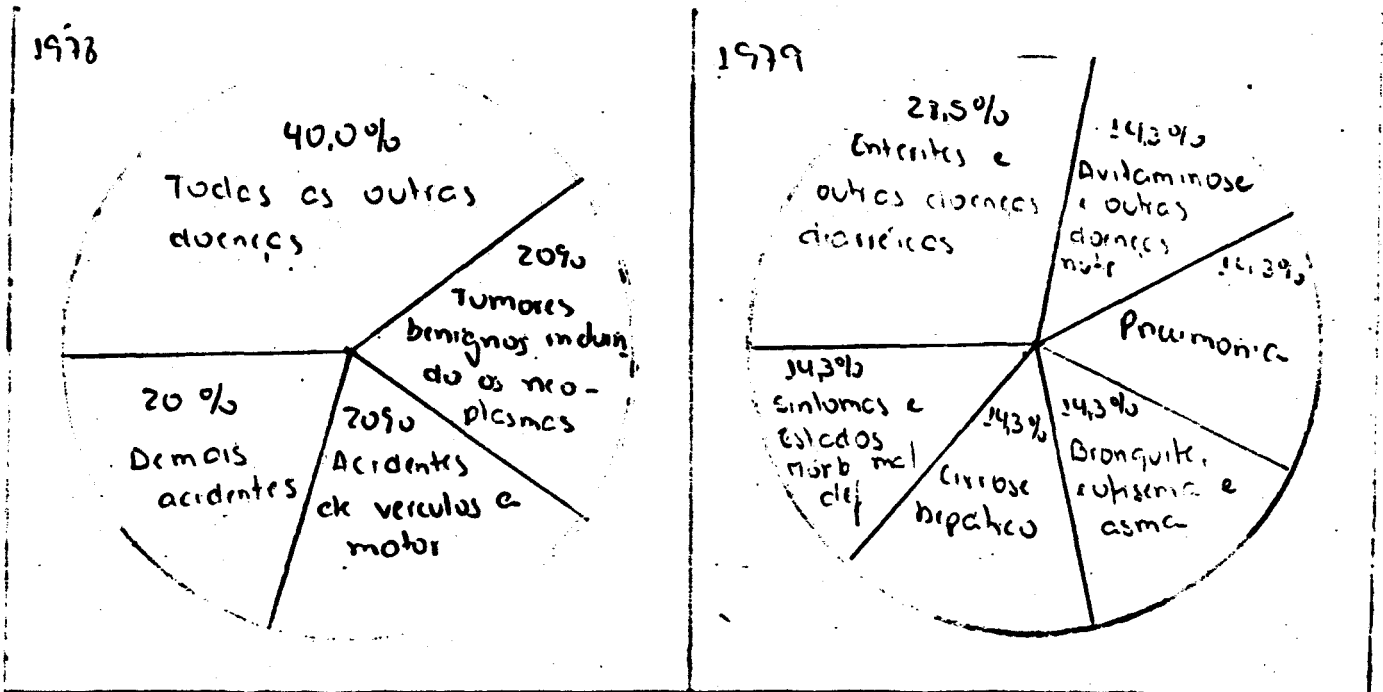 1978
40,0%
Todas as outras
doenças
20%
Tumores
benignos incluin
do os neo-
plasmas
20%
Acidentes
de veículos a
motor
20 %
Demais
acidentes
1979
28,5%
Enterites e
outras doenças
diarréicas
14,3%
Avitaminose
e outras
doenças
nutr
14,3%
Pneumonia
14,3%
Bronquite,
enfisema e
asma
14,3%
Cirrose
hepática
14,3%
Sintomas e
Estados
morb mal
def